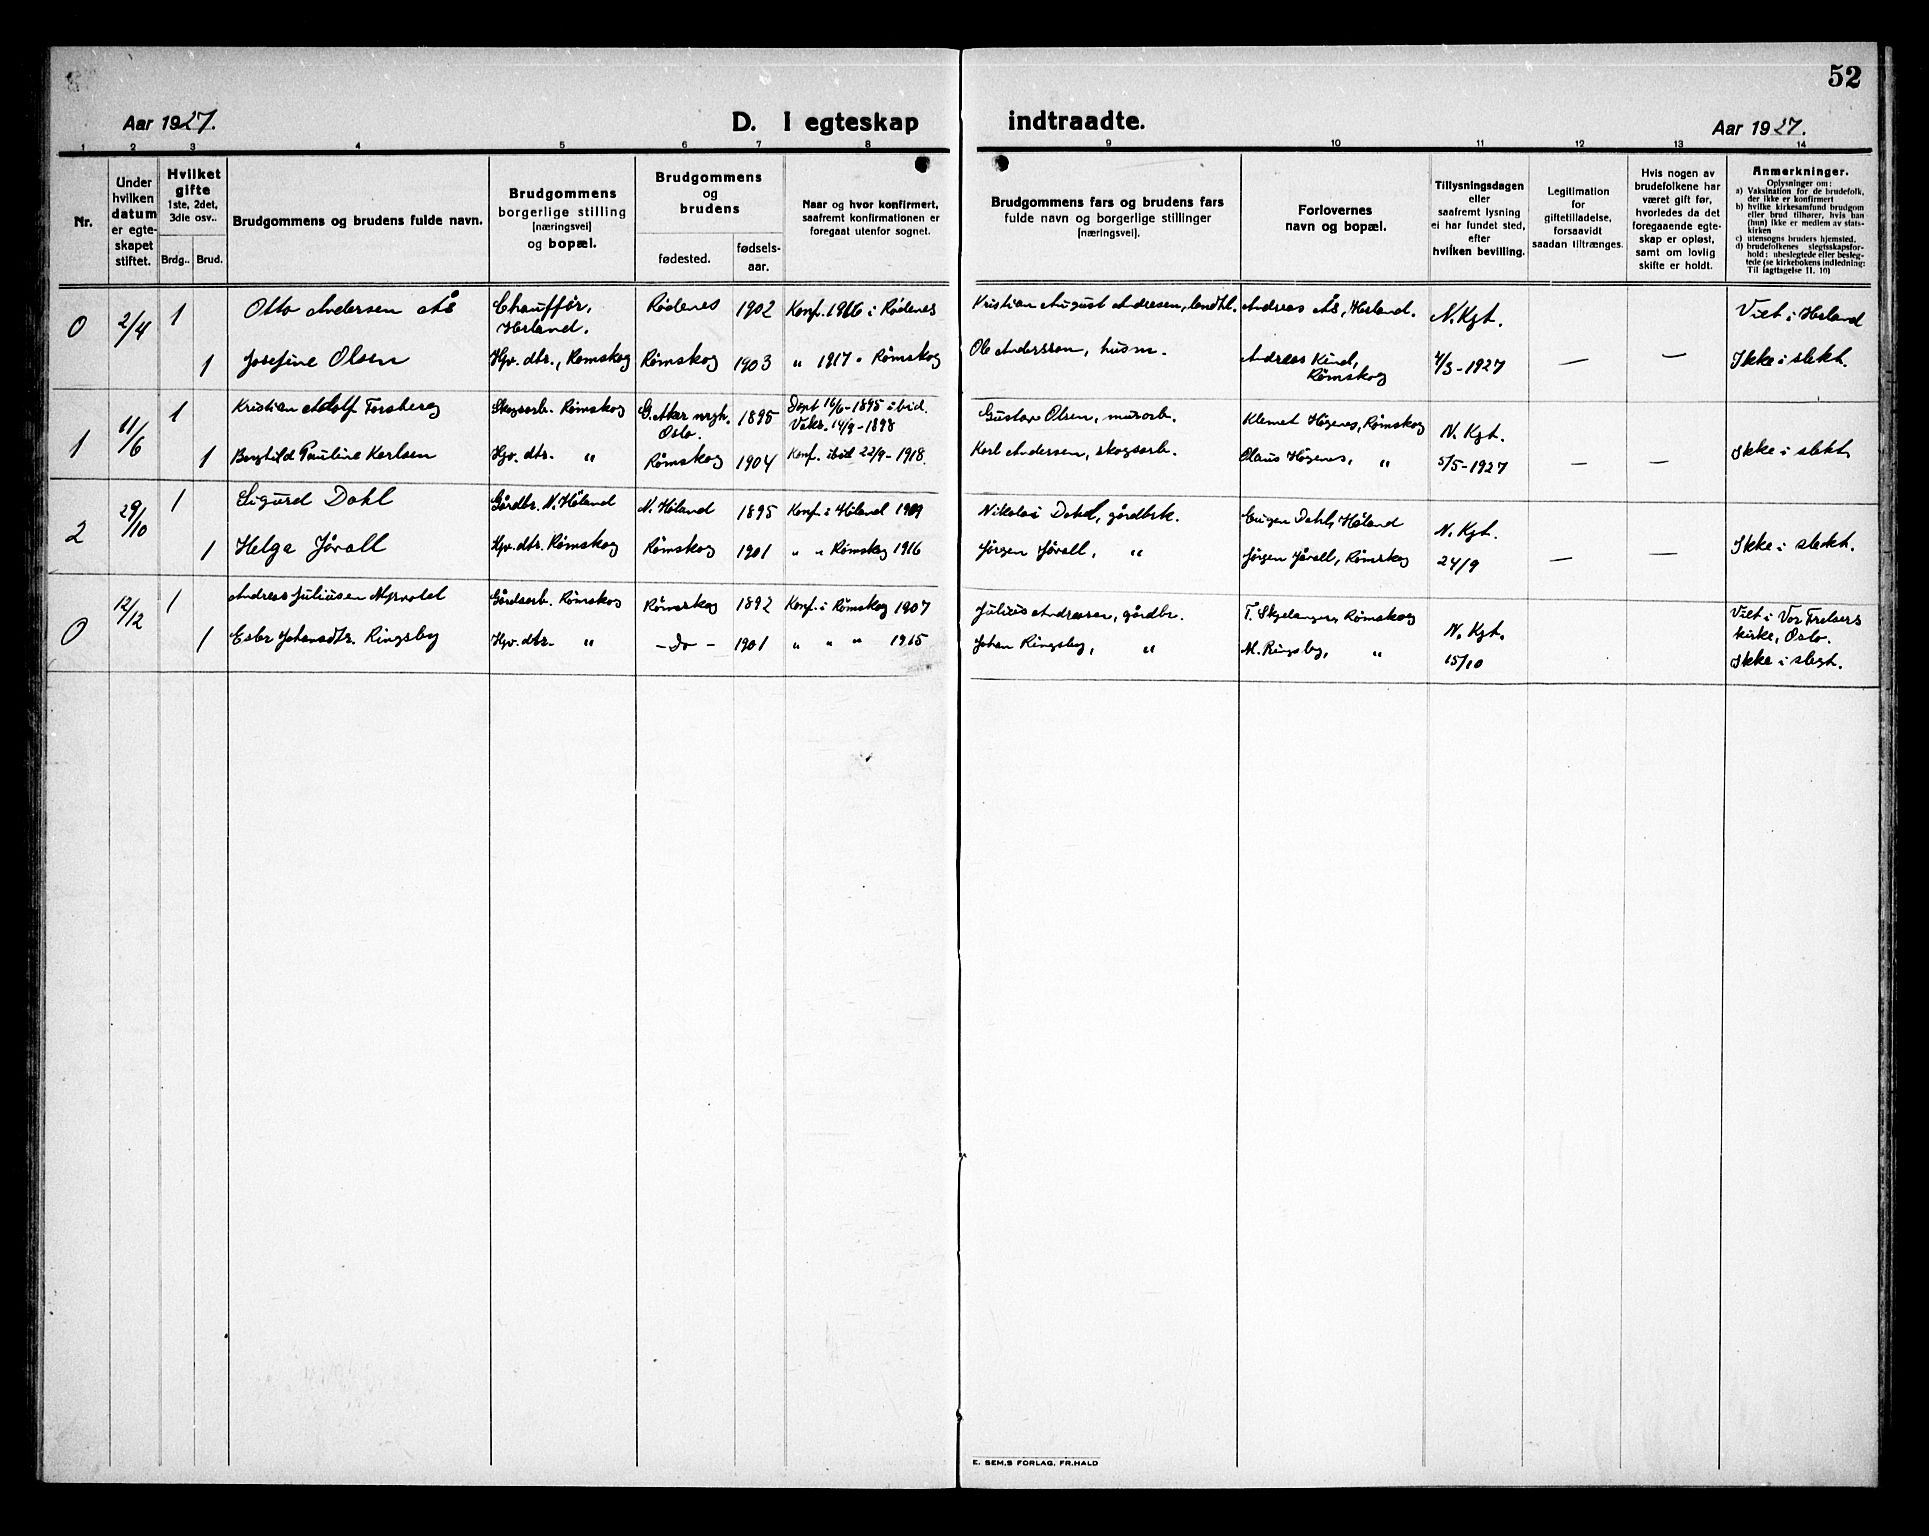 52
Aar 1927. D. I egteskap indtraadte. Aar 1927.
1 2 3 4 5 6 7 8 9 10 11 12 13 14
Nr.
Under hvilken datum er egteskapet stiftet.
Hvilket gifte 1ste, 2det, 3die osv.. Brdg.. Brud.
Brudgommens og brudens fulde navn.
Brudgommens borgerlige stilling (næringsvei) og bopæl.
Brudgommens og brudens fødested. fødselsaar.
Naar og hvor konfirmert, saafremt konfirmationen er foregaat utenfor sognet.
Brudgommens fars og brudens fars fulde navn og borgerlige stillinger (næringsvei).
Forlovernes navn og bopæl.
Tillysningsdagen eller saafremt lysning ei har fundet sted, efter hvilken bevilling.
Legitimation for giftetilladelse, forsaavidt saadan tiltrænges.
Hvis nogen av brudefolkene har været gift før, hvorledes da det foregaaende egteskap er opløst, samt om lovlig skifte er holdt.
Anmerkninger.
Oplysninger om:
a) Vaksination for de brudefolk, der ikke er konfirmert
b) hvilke kirkesamfund brudgom eller brud tilhører, hvis han (hun) ikke er medlem av statskirken
c) utensogns bruders hjemsted.
d) brudefolkenes slegtsskapsforhold: ubeslegtede eller beslegtede (se kirkebokens indledning: Til iagttagelse II. 10)
0 2/4 1 Otto Andersen Ås Chauffør, Hærland. Rødenes 1902 Konf. 1916 i Rødenes Kristian August Andresen, landhl. Andreas Ås, Hærland. N. Kgt. Viet i Hærland
1 Josefine Olsen Hpv. dtr., Rømskog Rømskog 1903 " 1917 " Rømskog Ole Anderssen, husm. Andreas Kind, Rømskog 4/3-1927 — — Ikke i slekt.
1 11/6 1 Kristian Adolf Forsberg Skogsarb. Rømskog G. Aker mgh. Oslo. 1895 Døpt 16/6-1895 ibid. Vaks. 14/9-1898 Gustav Olsen, murarb. Klemet Høgenes, Rømskog N. Kgt.
1 Borghild Pauline Karlsen Hpv. dtr. " Rømskog 1904 Konf. ibid 22/9-1918. Karl Andersen, skogsarb. Claus Høgenes, " 5/5-1927 — — Ikke i slekt
2 29/10 1 Sigurd Dahl Gårdbr. N. Høland N. Høland 1895 Konf. i Høland 1909 Nikolai Dahl, gårdbrk. Eugen Dahl, Høland N. Kgt.
1 Helga Jåvall Hpv. dtr. Rømskog Rømskog 1901 " " Rømskog 1916 Jørgen Jåvall, " Jørgen Jåvall, Rømskog 24/9 — — Ikke i slekt.
0 12/12 1 Andreas Juliusen Gårdsarb. Rømskog Rømskog 1892 Konf. i Rømskog 1907 Julius Andresen, gårdbr. T. Skjelanger, Rømskog N. Kgt. Viet i Vor Frelsers kirke, Oslo.
1 Ester Johansdtr. Ringsby Hpv. dtr. " - Do - 1901 " " " 1915 Johan Ringsby, " M. Ringsby, " 15/10 Ikke i slegt.
E. SEM.S FORLAG, FR.HALD